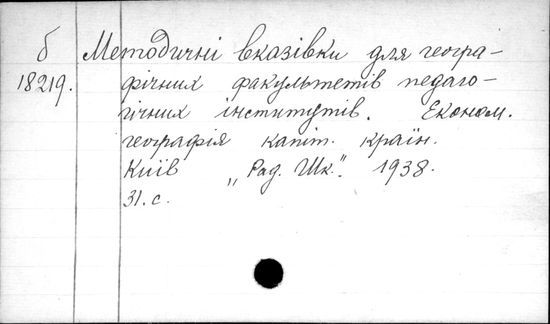 б Методичні вказівки для геогра-
18219. фічних факультетів педаго-
гічних інститутів. Економ.
географія капіт. країн.
Київ „Рад. Шк.". 1938.
31. с.